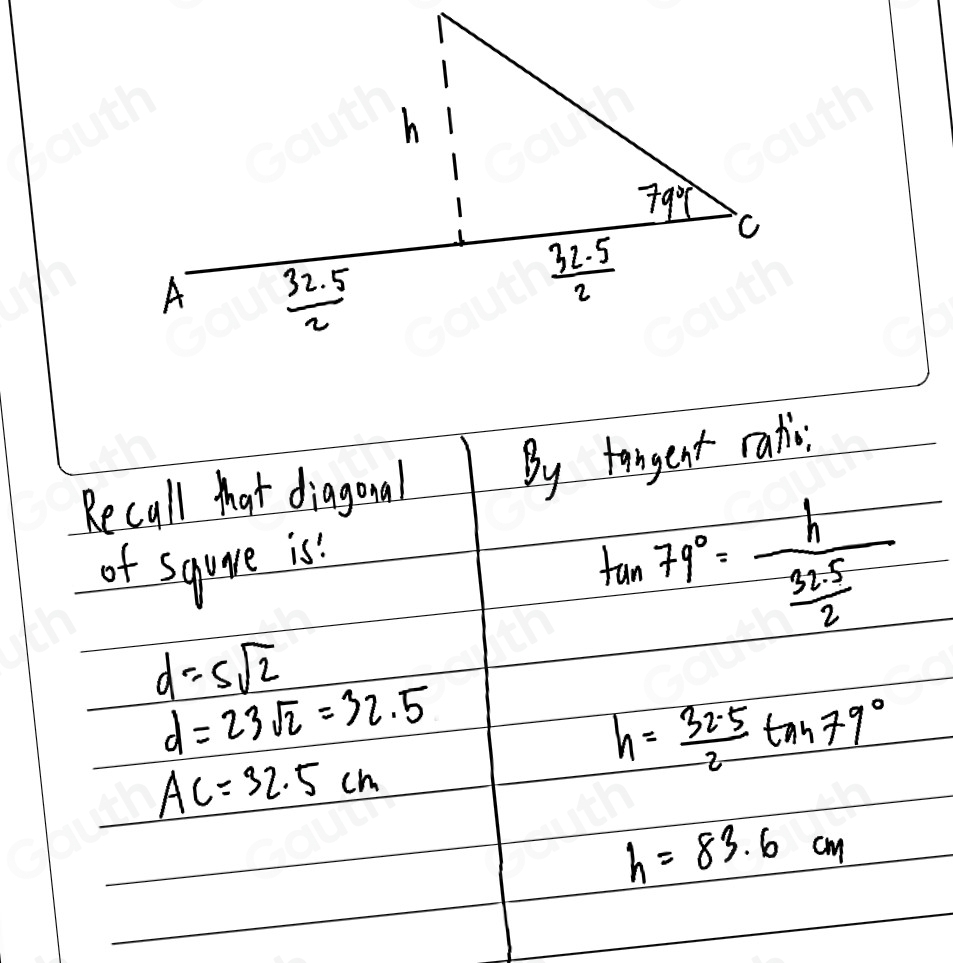 h
79°
C
A
32.5
2
32.5
2
Recall that diagonal
of square is:
d = s√2
d = 23√2 = 32.5
AC = 32.5 cm
By tangent ratio:
tan 79° = h
32.5
2
h = 32.5/2 tan 79°
h = 83.6 cm
Gauth